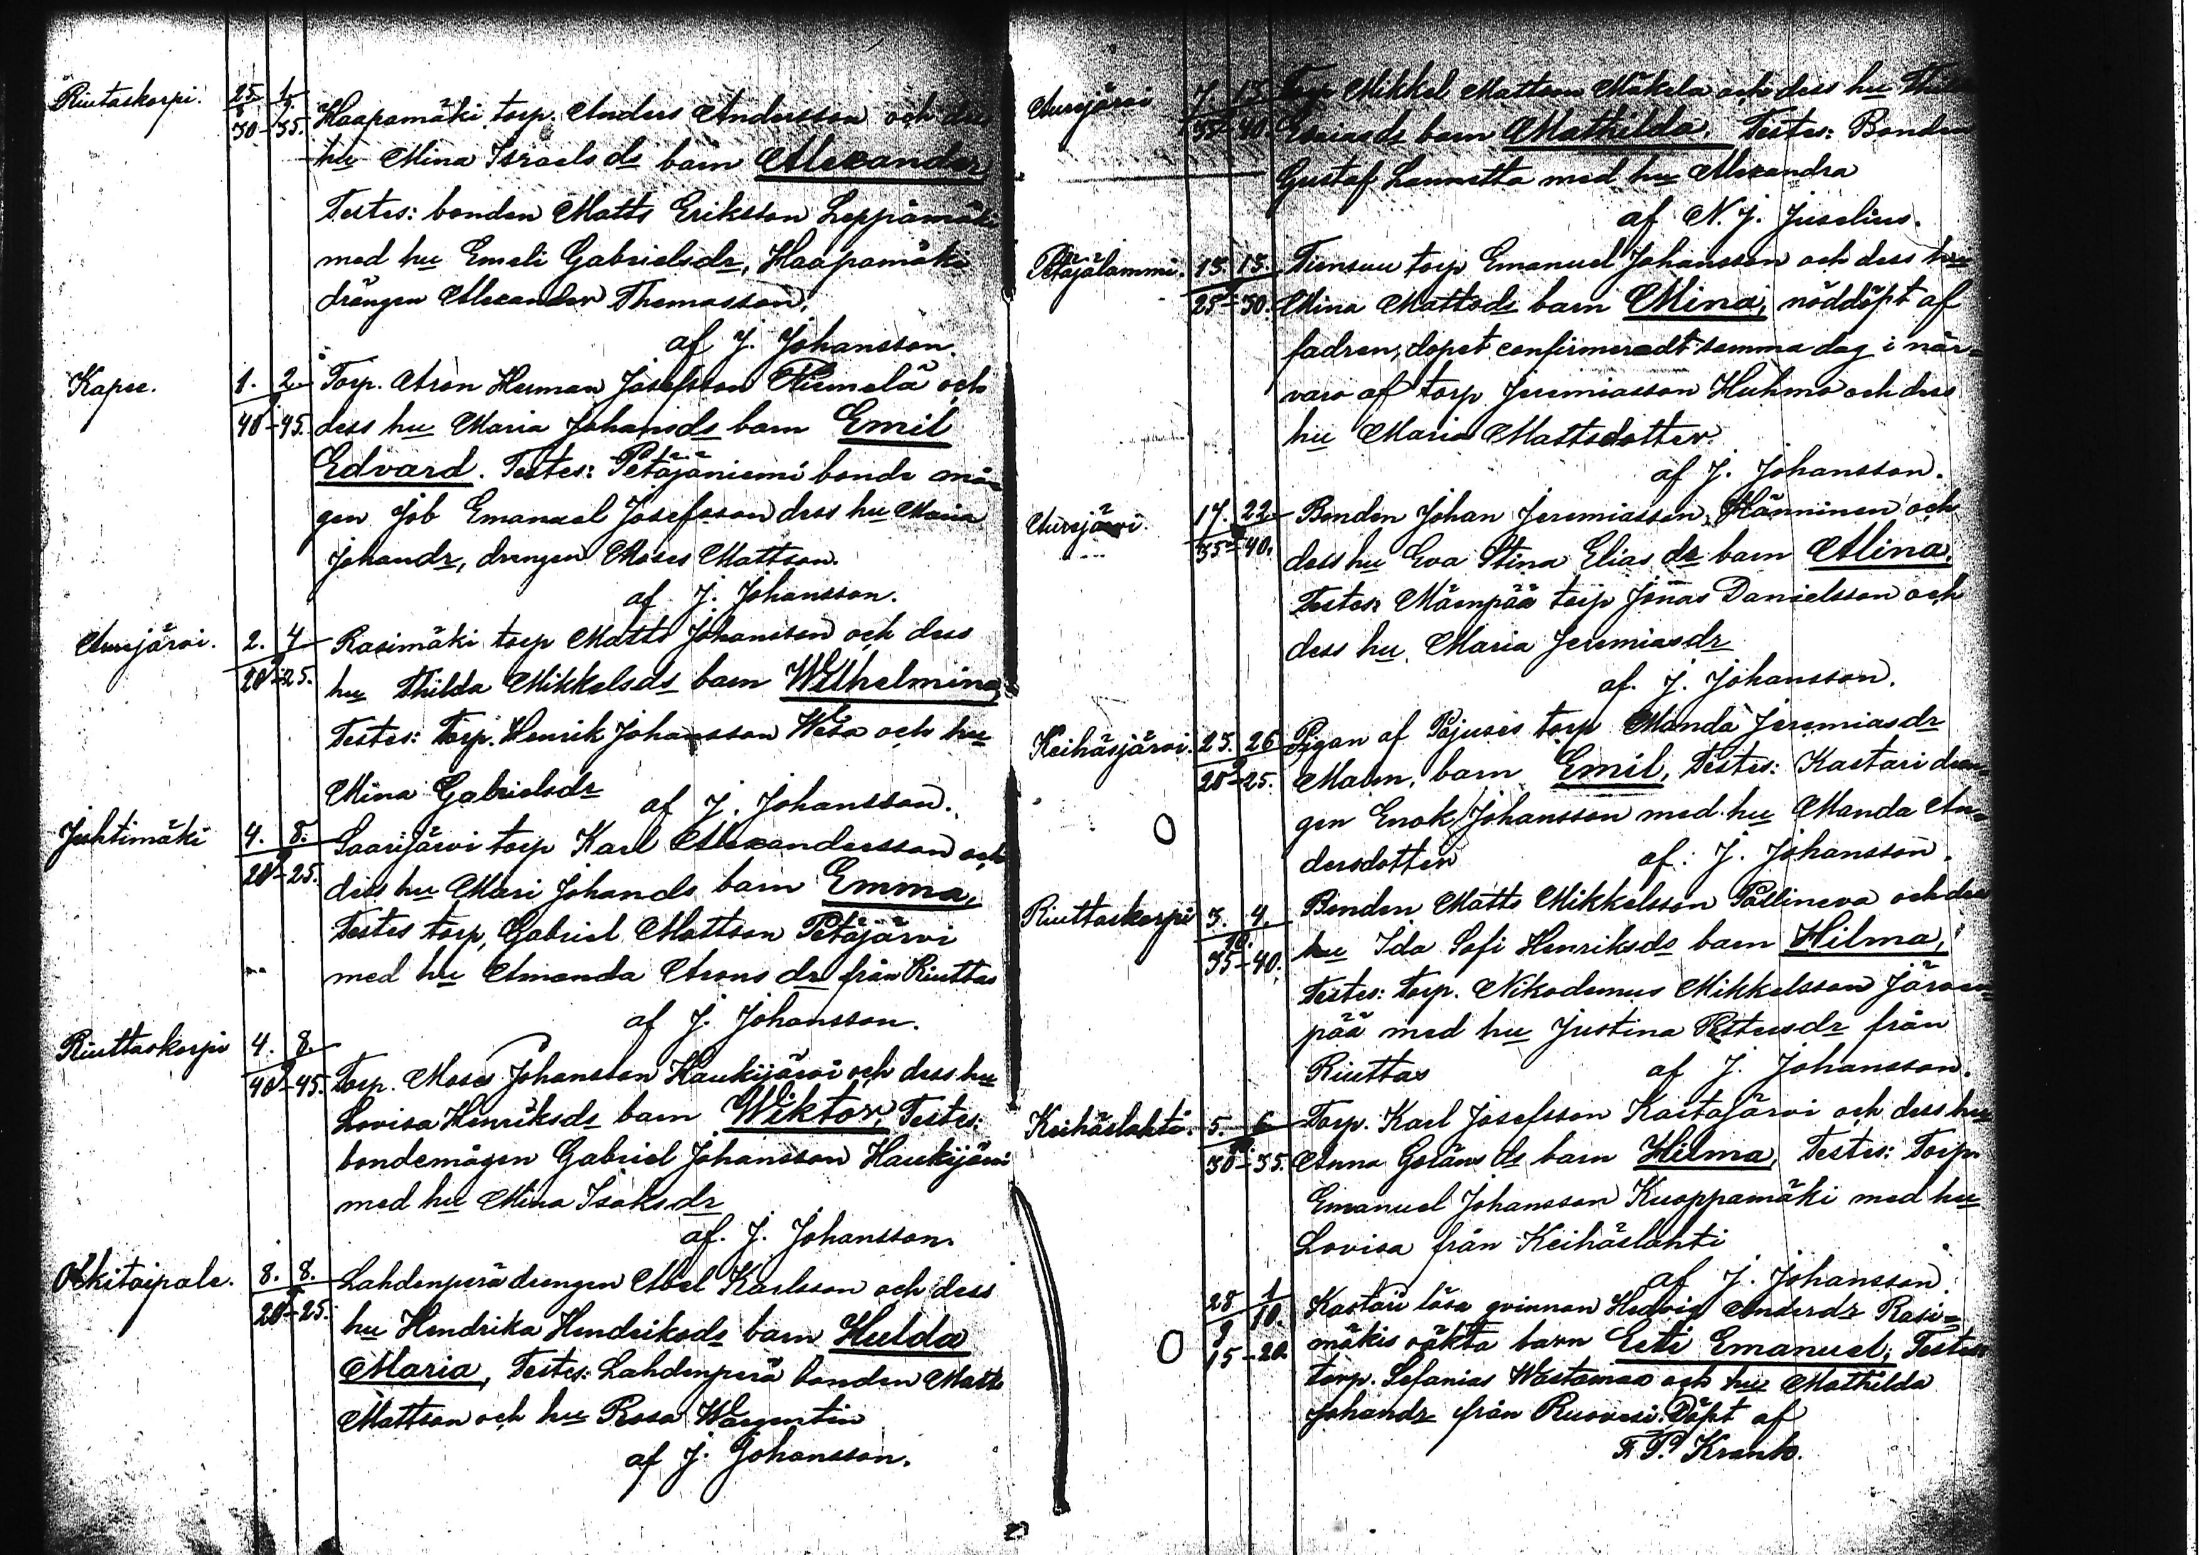 Riutaskorpi. 25 1/9 Haapamäki torp. Anders Andersson och dess
30-35. hu Mina Israelsdr barn Alexander,
Testes: bonden Matts Eriksson Leppämäki
med hu Emeli Gabrielsdr, Haapamäki
drängen Alexander Thomasson.
af J. Johansson.
Kapee. 1. 2. Torp. Aron Herman Josefsson Niemelä och
40-45. dess hu Maria Johansdr barn Emil
Edvard. Testes: Petäjäniemi bonde må-
gen Job Emanuel Josefsson dess hu Maria
Johandr, drengen Moses Mattson.
af J. Johansson.
Aurejärvi. 2. 4 Rasimäki torp Matts Johansson och dess
20-25. hu Thilda Mikkelsdr barn Wilhelmina,
Testes: Torp. Henrik Johansson Wesa och hu
Mina Gabrielsdr
af J. Johansson.
Juhtimäki 4. 8. Saarijärvi torp Karl Alexandersson och
20-25. dess hu Mari Johandr barn Emma,
Testes torp, Gabriel Mattson Petäjärvi
med hu Amanda Arons dr från Riuttas
af J. Johansson.
Riuttaskorpi 4. 8.
40-45. Torp. Moses Johansson Haukijärvi och dess hu
Lovisa Henriksdr barn Wiktor, Testes:
bondemågen Gabriel Johansson Haukijärvi
med hu Mina Isaksdr
af. J. Johansson.
Olkitaipale. 8. 8. Lahdenperä drengen Abel Karlsson och dess
20-25. hu Hendrika Hendriksdr barn Hulda
Maria, Testes: Lahdenperä bonden Matts
Mattson och hu Rosa Wargentin
af J. Johansson.
Aurejärvi 7. 13 Torp Mikkel Mattson Mäkela och dess hu
35-40. Esaiasdr barn Mathilda. Testes: Bonden
Gustaf Launetta med hu Alexandra
af N. J. Juselius.
Petäjälammi. 13. 13. Tiensuu torp Emanuel Johansson och dess hu
25-30. Mina Mattsdr barn Mina, nöddöpt af
fadren, dopet confirmeradt samma dag i när-
varo af torp Jeremiasson Huhmo och dess
hu Maria Mattsdotter.
af J. Johansson.
Aurejärvi. 17. 22 Bonden Johan Jeremiasson, Hänninen och
35-40. dess hu Eva Stina Elias dr barn Alina.
Testes: Mäenpää torp Jonas Danielsson och
dess hu. Maria Jeremiasdr
af. J. Johansson.
Keihäsjärvi. 25. 26 Pigan af Pajuses torp Manda Jeremiasdr
20-25. barn Emil, Testes: Kastari dren-
gen Enok Johansson med hu Manda An-
dersdotter af: J. Johansson.
Riuttaskorpi 3. 4. Bonden Matts Mikkelsson Pällineva och dess
10.
35-40. hu Ida Sofi Henriksdr barn Hilma,
Testes: torp. Nikodemus Mikkelsson Järven-
pää med hu Justina Pettersdr från
Riuttas af J. Johansson.
Keihäslahti. 5. 6 Torp. Karl Josefsson Kastajärvi och dess hu
30-35. Anna Görans dr barn Hilma, Testes: Torp.
Emanuel Johansson Kuoppamäki med hu
Lovisa från Keihäslahti
af J. Johansson
28/9 1/10. Kastari lösa qvinnan Hedvig Andersdr Rasi-
15-20. mäkis oäkta barn Eeti Emanuel, Testes
torp. Sefanias Westamaa och hu Mathilda
Johandr från Ruovesi. Döpt af
F. P. Krank.